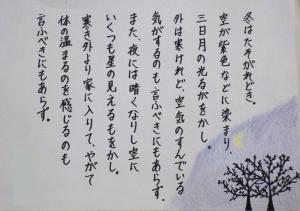 冬はたそがれどき。
空が紫色などに染まり、
三日月の光るがをかし。
外は寒けれど、空気のすんでいる
気がするのも言ふべきにもあらず。
また、夜には暗くなりし空に
いくつも星の見えるもをかし。
寒き外より家に入りて、やがて
体の温まるのを感じるのも
言ふべきにもあらず。